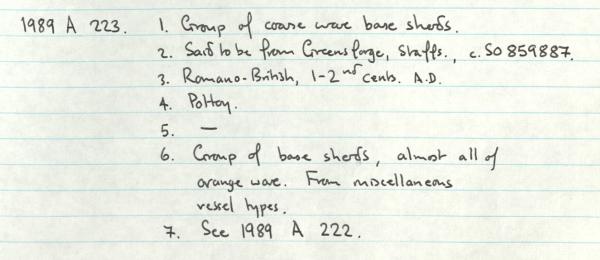 1989 A 223. 1. Group of coarse ware base sherds.
2. Said to be from Greensforge, Staffs., c. SO 859887.
3. Romano-British, 1-2nd cents. A.D.
4. Pottery.
5. —
6. Group of base sherds, almost all of
orange ware. From miscellaneous
vessel types.
7. See 1989 A 222.